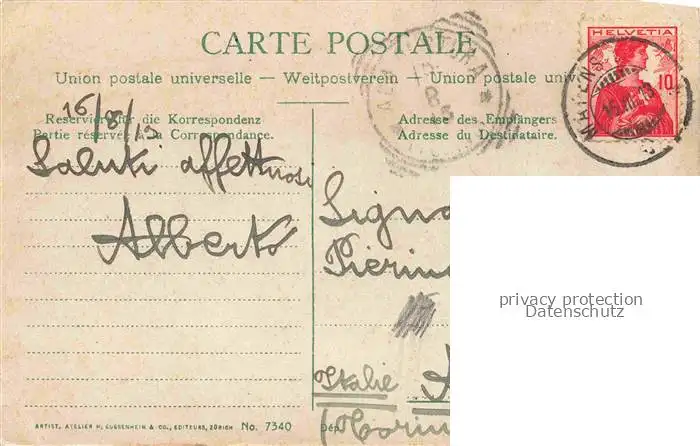 CARTE POSTALE
HELVETIA
10
Union postale universelle – Weltpostverein – Union postale uni
16/8/13
Reserviert für die Korrespondenz
Partie réservée à la Correspondance.
Adresse des Empfängers
Adresse du Destinataire.
Saluti affettuosi
Alberto
Signo
Pierin
privacy protection
Datenschutz
Italie
(Torin
ARTIST. ATELIER H. GUGGENHEIM & CO., EDITEURS, ZÜRICH No. 7340
Dép